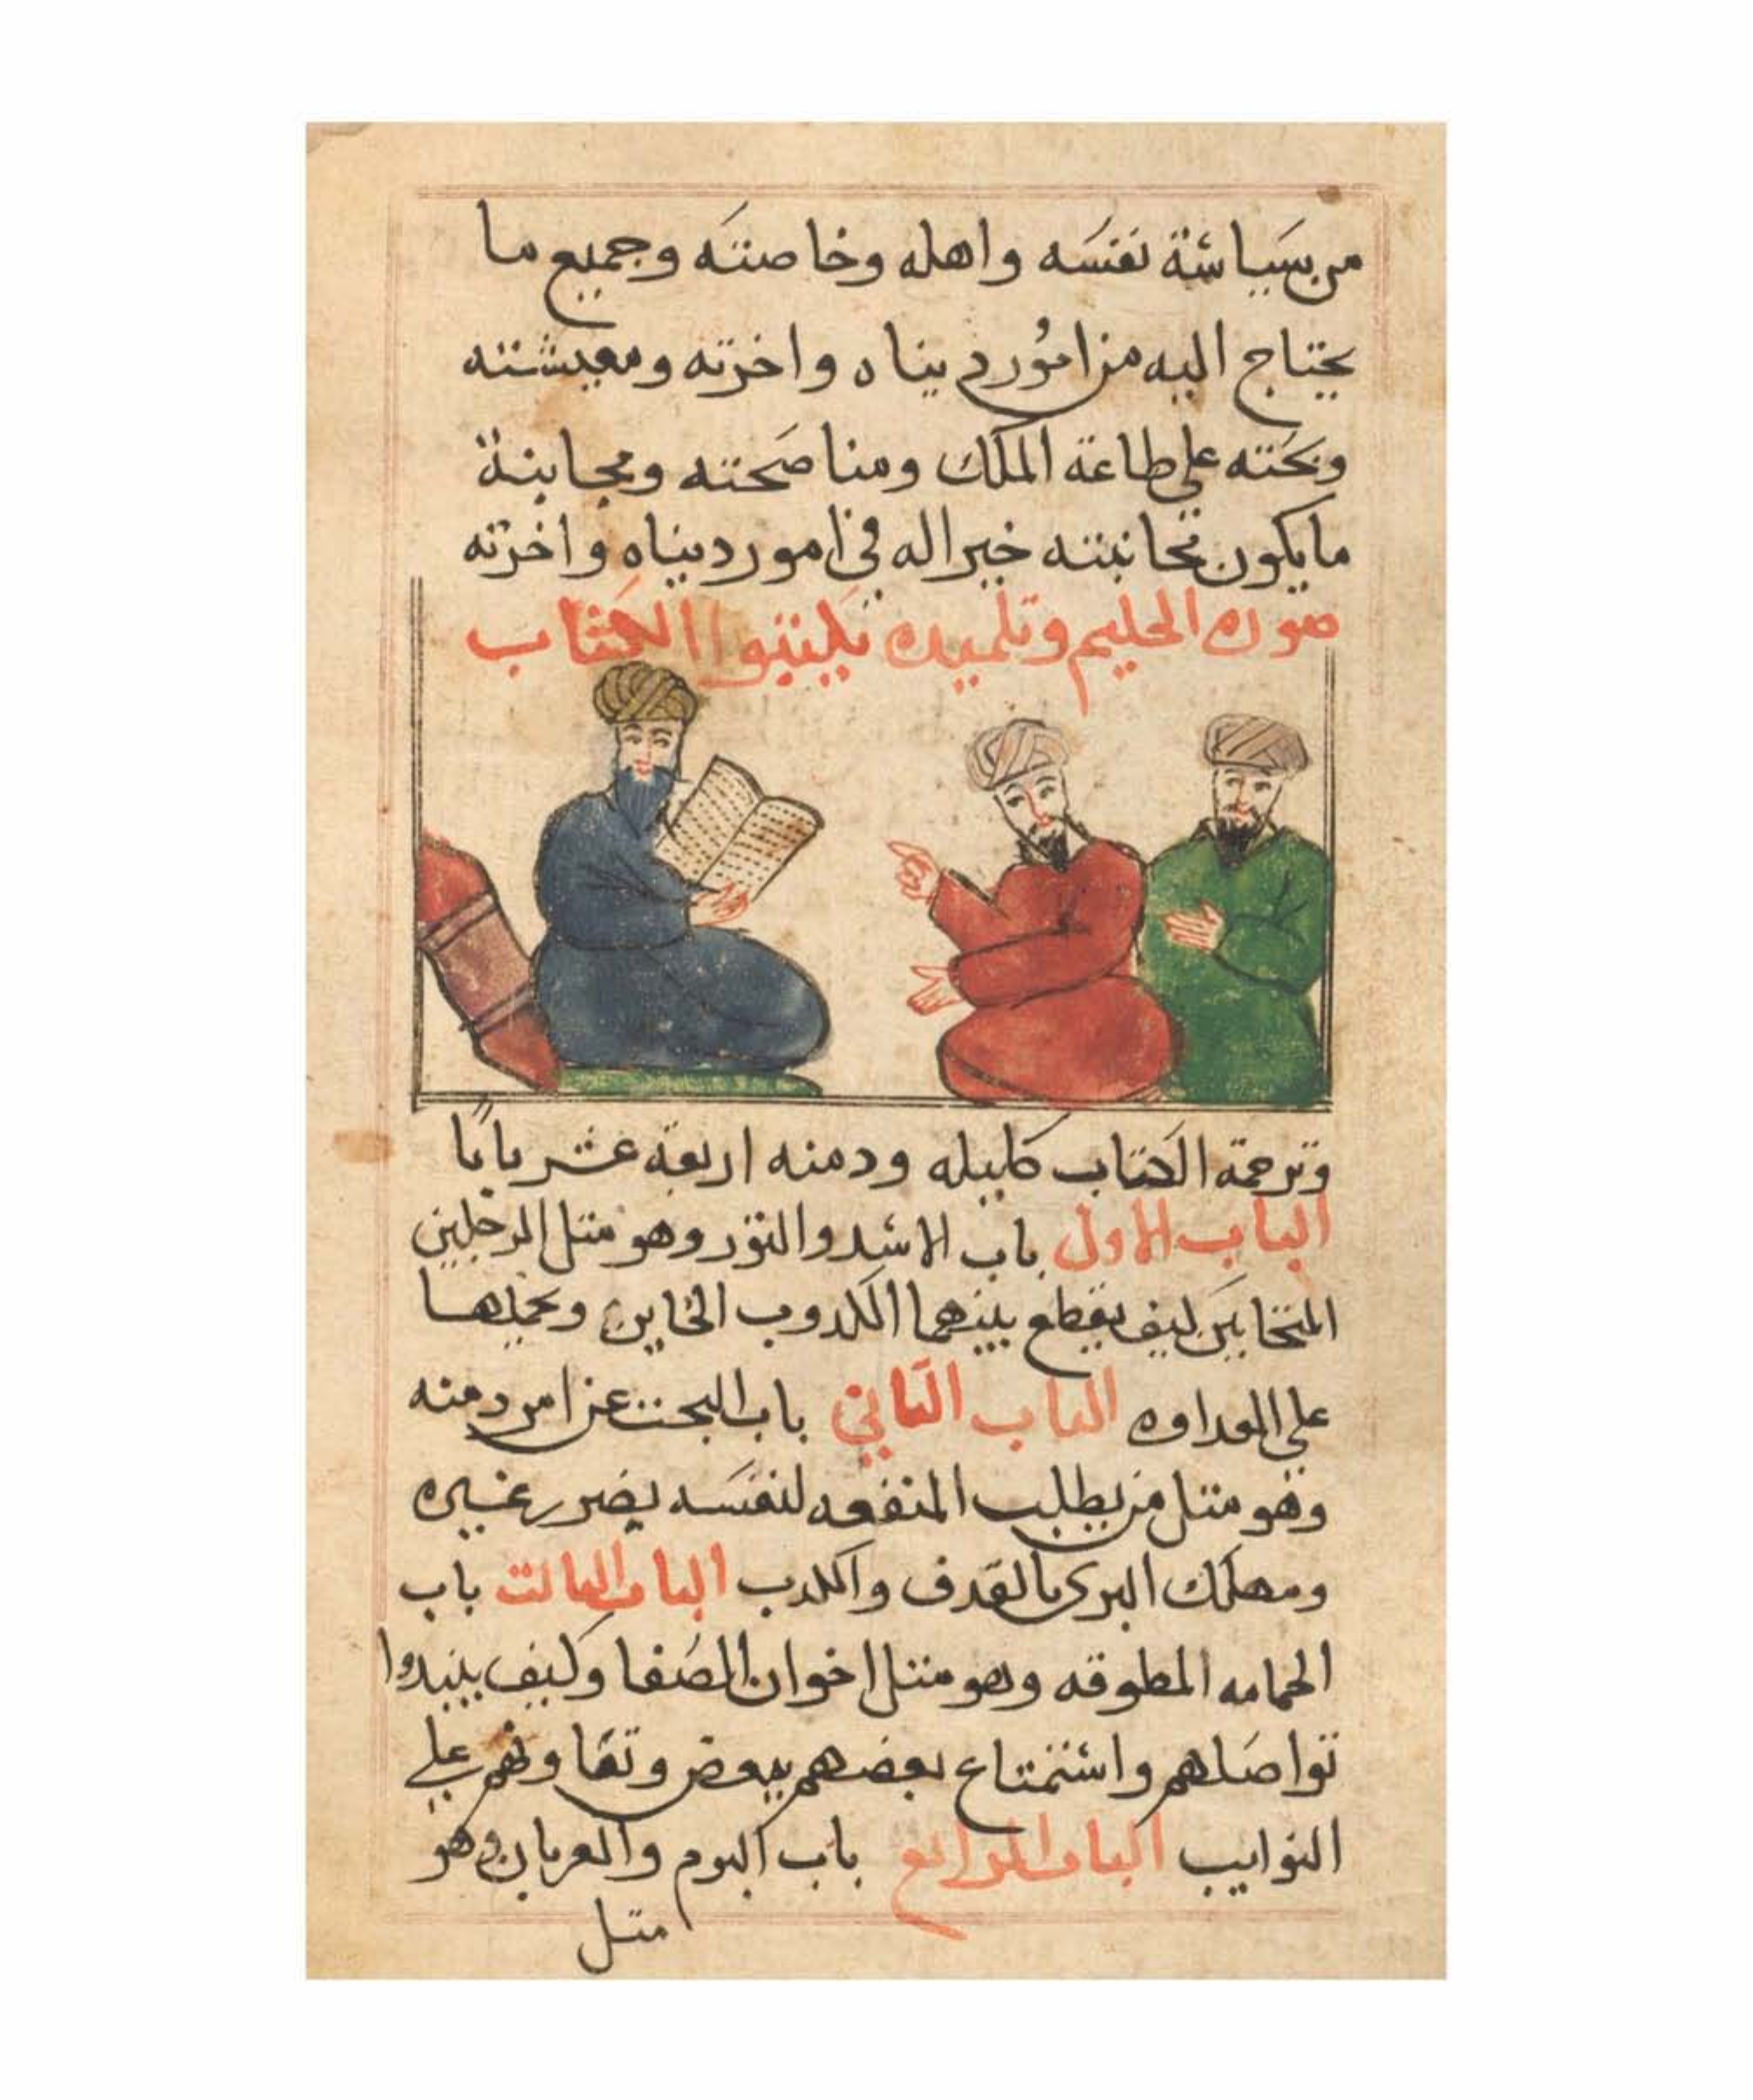 من سياسة نفسه واهله وخاصته وجميع ما
يحتاج اليه من امور دنياه واخرته ومعيشته
ويحثه على طاعة الملك ومناصحته ومجانبة
ما يكون مجانبته خيرا له في امور دنياه واخرته
صورة الحليم وتلميده يكتبوا الكتاب
وترجمة الكتاب كليله ودمنه اربعة عشر بابا
الباب الاول باب الاسد والثور وهو متل الرجلين
المتحابين كيف يقطع بينهما الكدوب الخاين ويحملهما
على العداوه الباب الثاني باب البحت عن امر دمنه
وهو متل من يطلب المنفعه لنفسه بضرر غيره
ومهلك البرى بالقدف والكدب الباب الثالت باب
الحمامه المطوقه وهو متل اخوان الصفا وكيف يبتدوا
تواصلهم واستمتاع بعضهم ببعض وتعاونهم على
النوايب الباب الرابع باب البوم والغربان وهو
متل